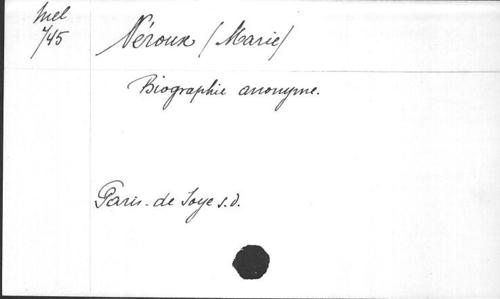 Mel
745
Néroux (Marie)
Biographie anonyme.
Paris. de Soye s.d.